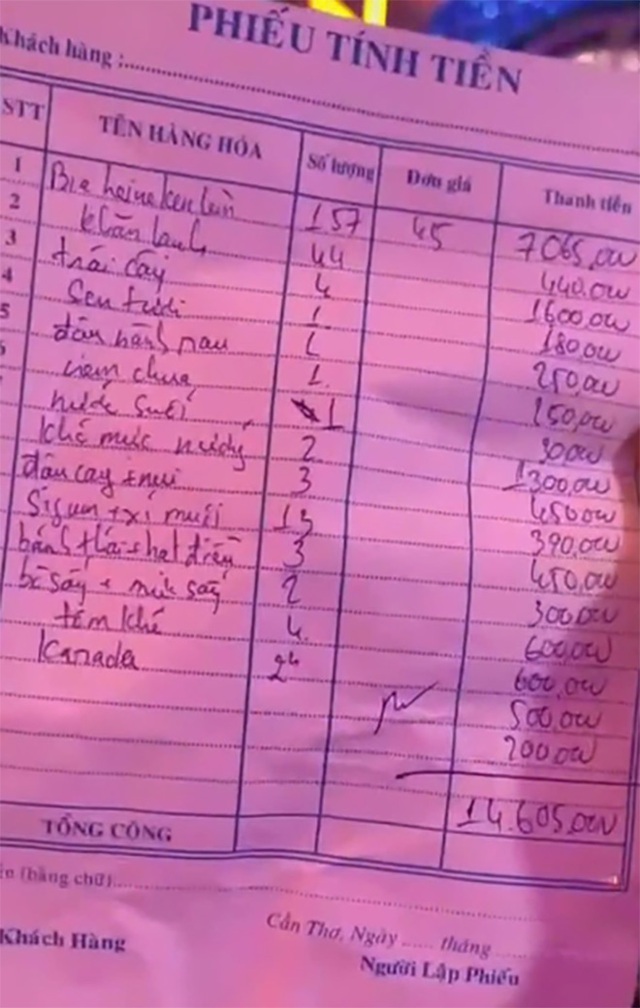 PHIẾU TÍNH TIỀN
Khách hàng :
STT TÊN HÀNG HÓA Số lượng Đơn giá Thành tiền
1 Bia heineken lùn 157 45 7065,000
2 khăn lạnh 44 440,000
3 trái cây 4 1600,000
4 Sen tươi 1 180,000
5 đậu hành nau 1 250,000
nem chua 1 150,000
nước suối 1 30,000
khô mực nướng 2 1300,000
đậu cay + nui 3 450,000
Sigum + xí muội 13 390,000
bánh + hạt điều 3 450,000
bò sấy + mực sấy 2 300,000
tôm khô 4 600,000
Kanada 2h 600,000
500,000
200,000
14.605,000
TỔNG CỘNG
(bằng chữ)
Cần Thơ, Ngày ..... tháng .....
Khách Hàng Người Lập Phiếu